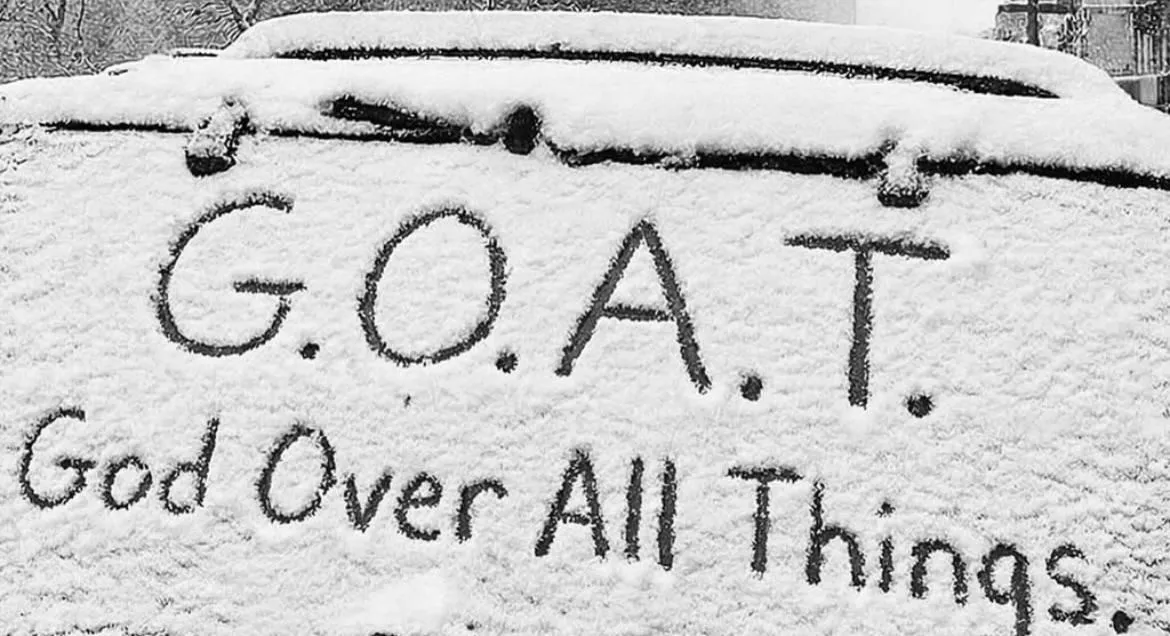 G.O.A.T.
God Over All Things.